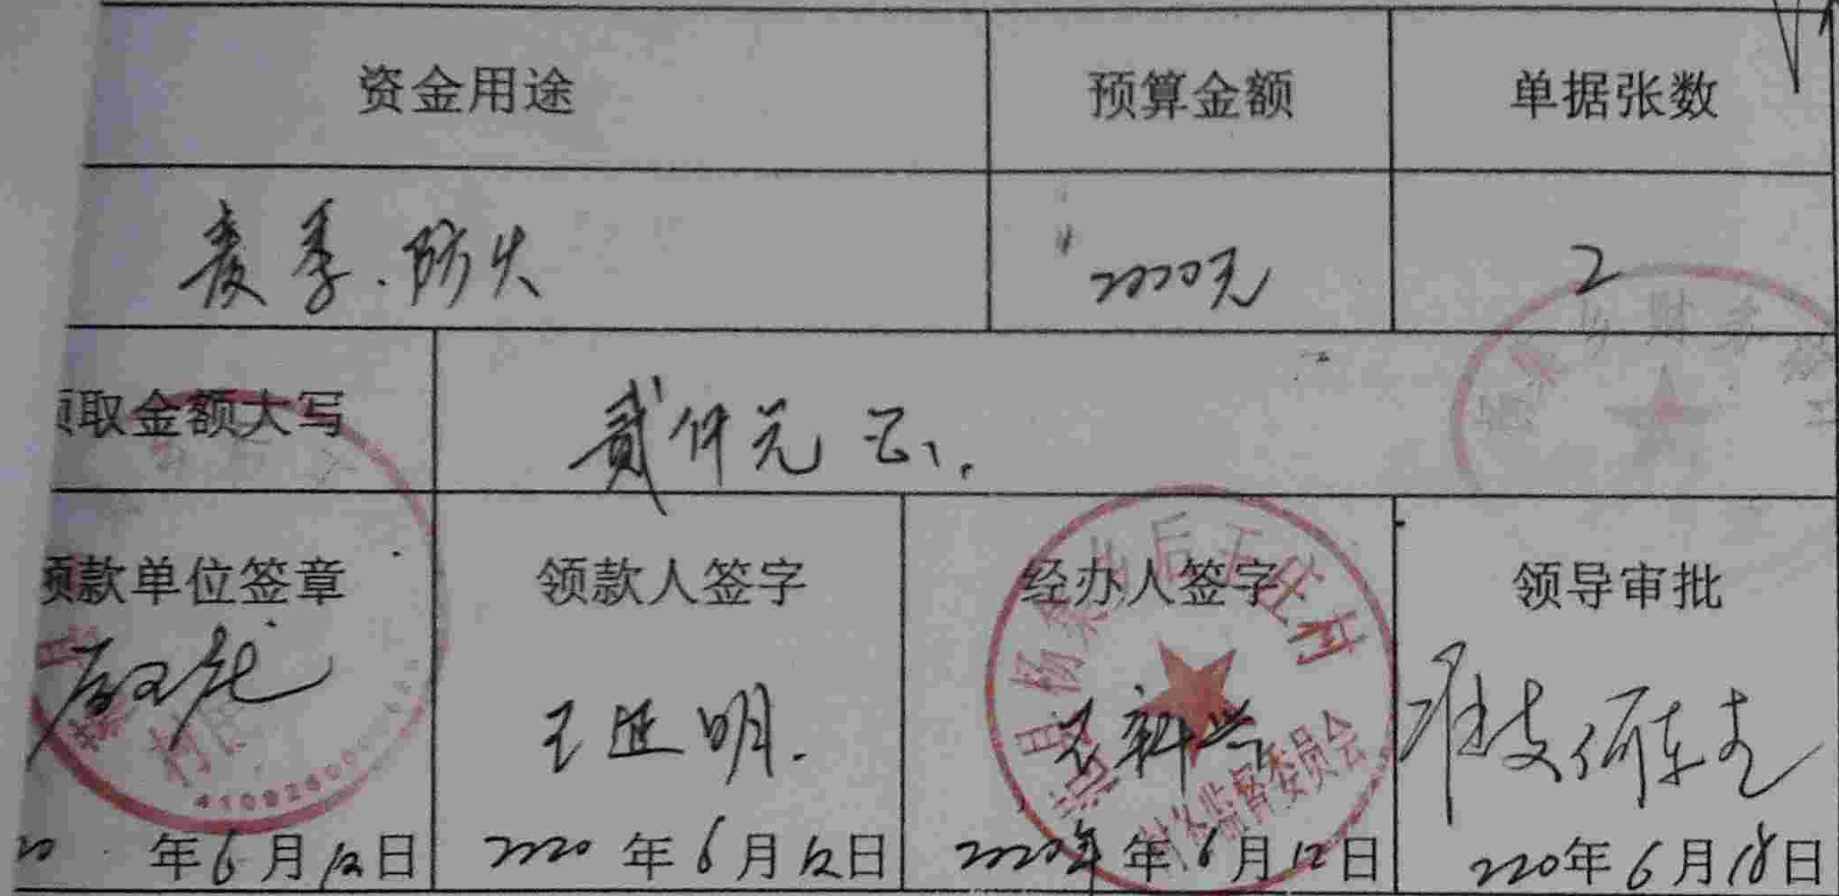 资金用途 预算金额 单据张数
麦季.防火 2000元 2
领取金额大写 贰仟元正.
领款单位签章 领款人签字 经办人签字 领导审批
王进明. 准支
20 年6月12日 2020年6月12日 2020年 年6月12日 2020年6月18日
后王庄村
财务监督委员会
41092600